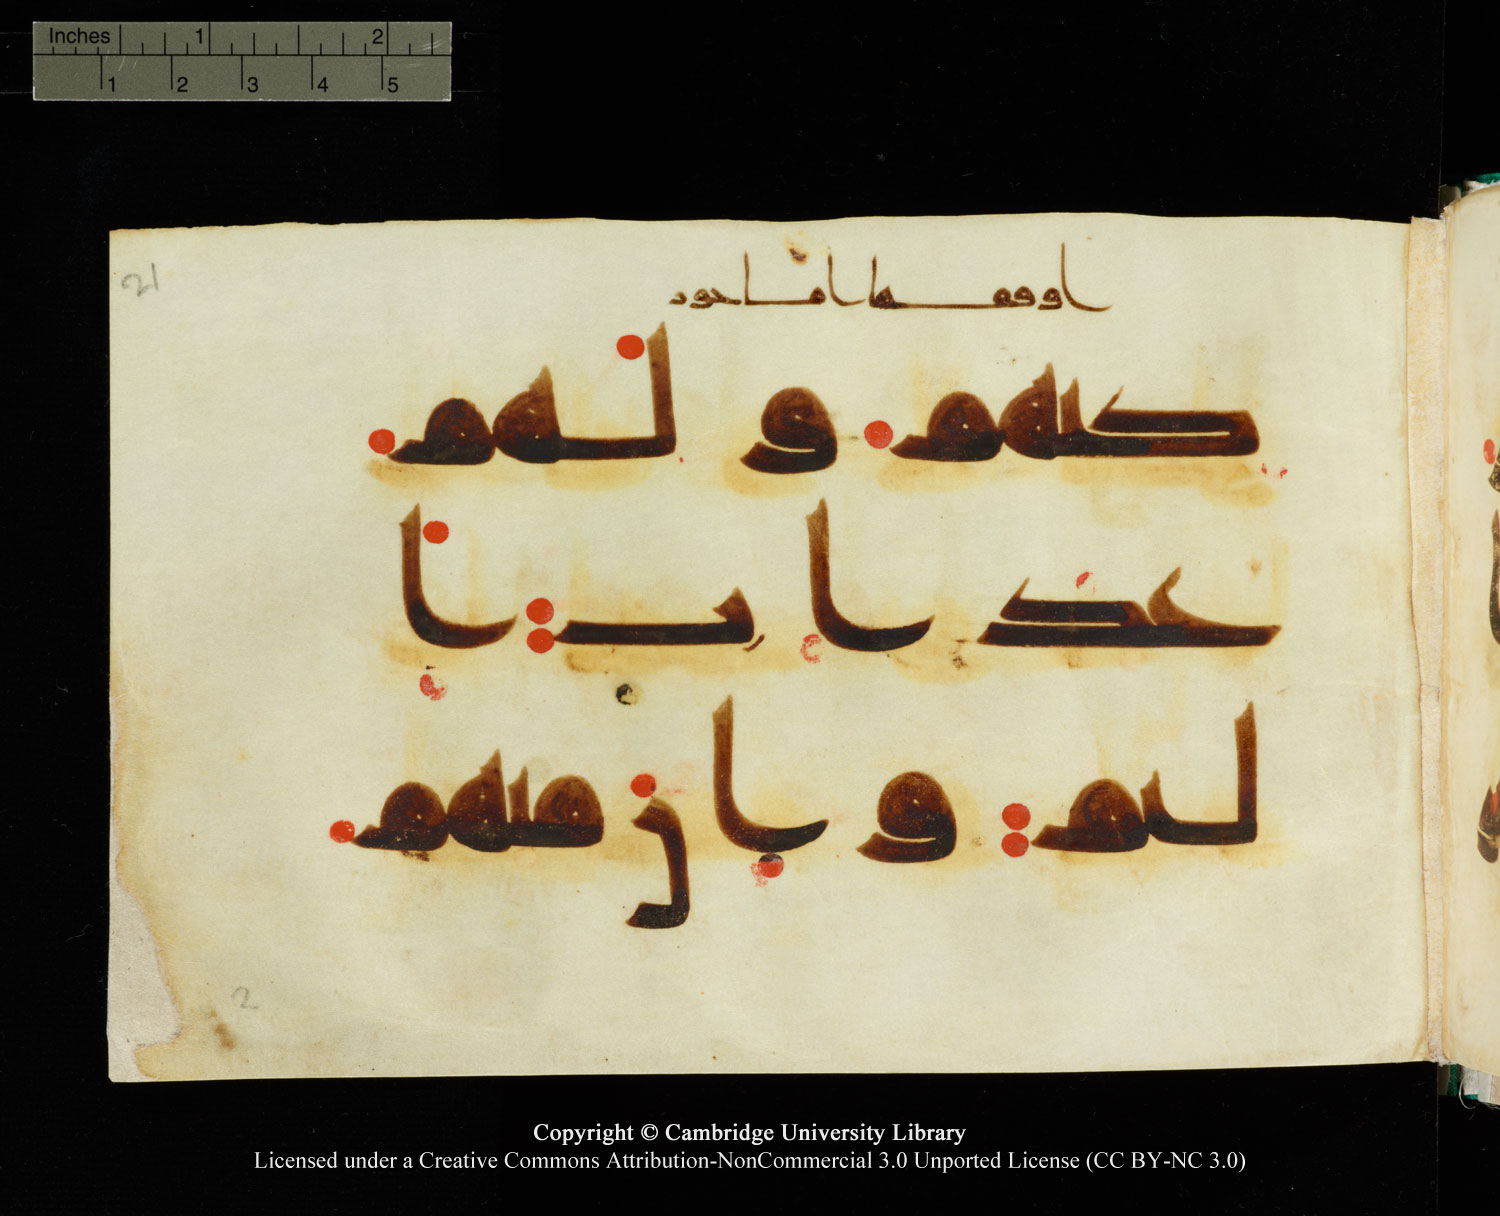 Inches 1 2
1 2 3 4 5
21
اوقفها اماجور
كيهم ولهم
عذاب ا
ليم وان منهم
2
Copyright © Cambridge University Library
Licensed under a Creative Commons Attribution-NonCommercial 3.0 Unported License (CC BY-NC 3.0)